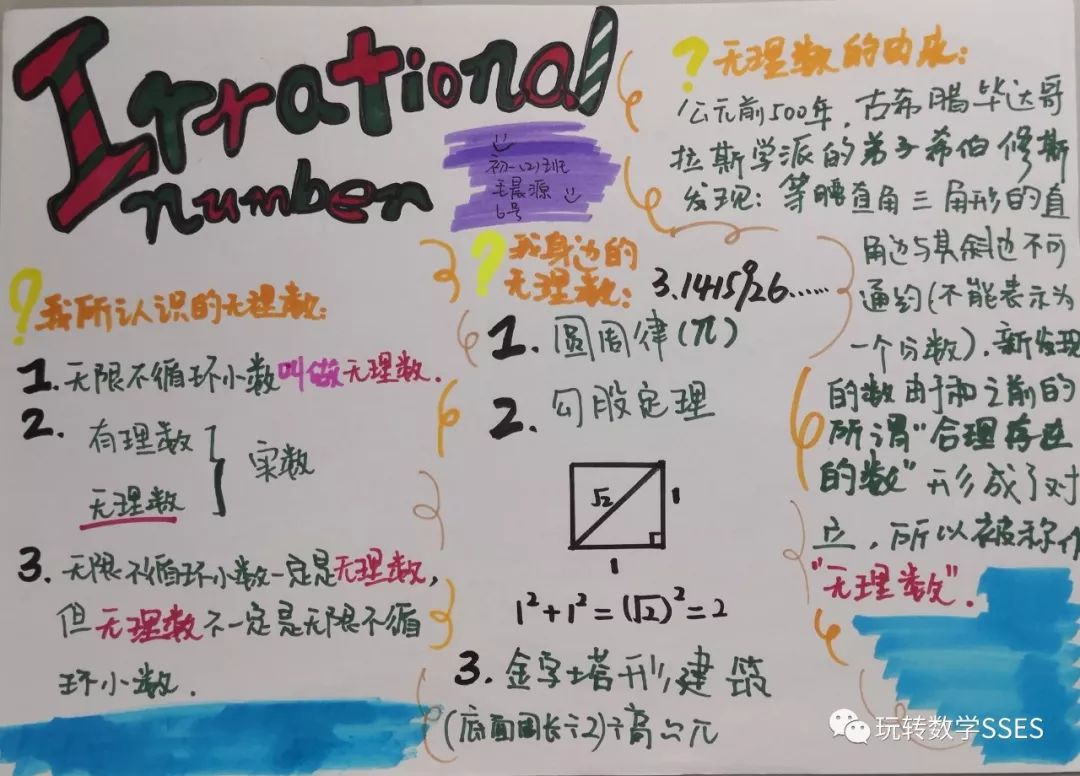 Irrational
number
初一(2)班
毛晨源
6号
?无理数的由来:
公元前500年,古希腊毕达哥
拉斯学派的弟子希伯修斯
发现:等腰直角三角形的直
角边与其斜边不可
通约(不能表示为
一个分数),新发现
的数由于和之前的
所谓“合理存在
的数”形成了对
立,所以被称作
“无理数”.
?我所认识的无理数:
1.无限不循环小数叫做无理数.
2.有理数
无理数
} 实数
3.无限不循环小数一定是无理数,
但无理数不一定是无限不循
环小数.
?我身边的
无理数:
3.1415926......
1.圆周律(π)
2.勾股定理
√2
1
1
1²+1²=(√2)²=2
3.金字塔形建筑
(底面周长÷2)÷高≈π
玩转数学SSES